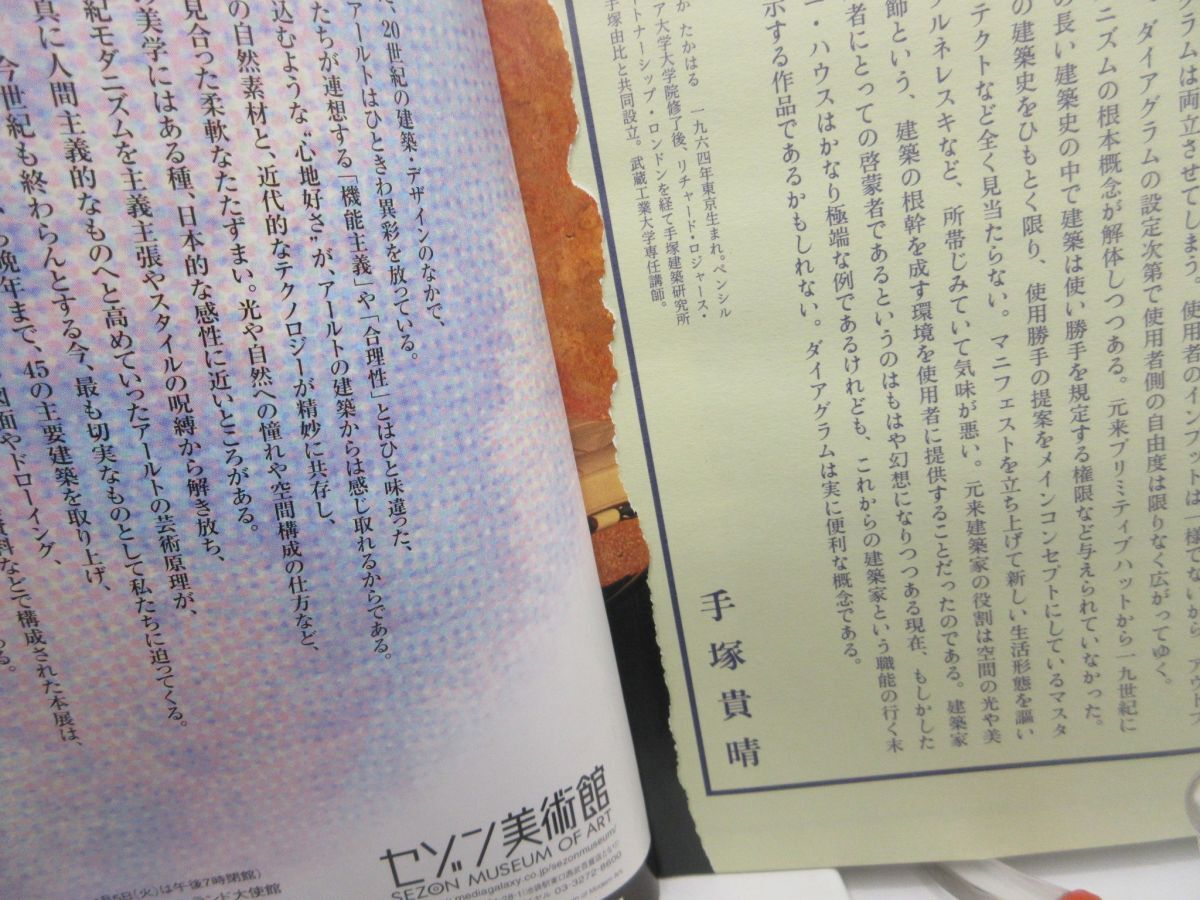 グラムは両立させてしまう 使用者のインプットは一様でないから
ダイアグラムの設定次第で使用者側の自由度は限りなく広がってゆく。
ニズムの根本概念が解体しつつある。元来プリミティブハットから一九世紀に
の長い建築史の中で建築は使い勝手を規定する権限など与えられていなかった。
の建築史をひもとく限り、使用勝手の提案をメインコンセプトにしているマスタ
テクトなど全く見当たらない。マニフェストを立ち上げて新しい生活形態を謳い
ルネレスキなど、所帯じみていて気味が悪い。元来建築家の役割は空間の光や美
師という、建築の根幹を成す環境を使用者に提供することだったのである。建築家
者にとっての啓蒙者であるというのはもはや幻想になりつつある現在、もしかした
ー・ハウスはかなり極端な例であるけれども、これからの建築家という職能の行く末
示する作品であるかもしれない。ダイアグラムは実に便利な概念である。
手塚貴晴
か たかはる 一九六四年東京生まれ。ペンシル
ア大学大学院修了後、リチャード・ロジャース・
ートナーシップ・ロンドンを経て手塚建築研究所
手塚由比と共同設立。武蔵工業大学専任講師。
、20世紀の建築・デザインのなかで、
アールトはひときわ異彩を放っている。
たちが連想する「機能主義」や「合理性」とはひと味違った、
込むような“心地好さ”が、アールトの建築からは感じ取れるからである。
の自然素材と、近代的なテクノロジーが精妙に共存し、
見合った柔軟なたたずまい。光や自然への憧れや空間構成の仕方など、
美学にはある種、日本的な感性に近いところがある。
紀モダニズムを主義主張やスタイルの呪縛から解き放ち、
真に人間主義的なものへと高めていったアールトの芸術原理が、
今世紀も終わらんとする今、最も切実なものとして私たちに迫ってくる。
晩年まで、45の主要建築を取り上げ、
図面やドローイング、
資料などで構成された本展は、
ある。
セゾン美術館
SEZON MUSEUM OF ART
mediagalaxy.co.jp/sezonmuseum/
03-3272-8600
5日(火)は午後7時閉館)
ンド大使館